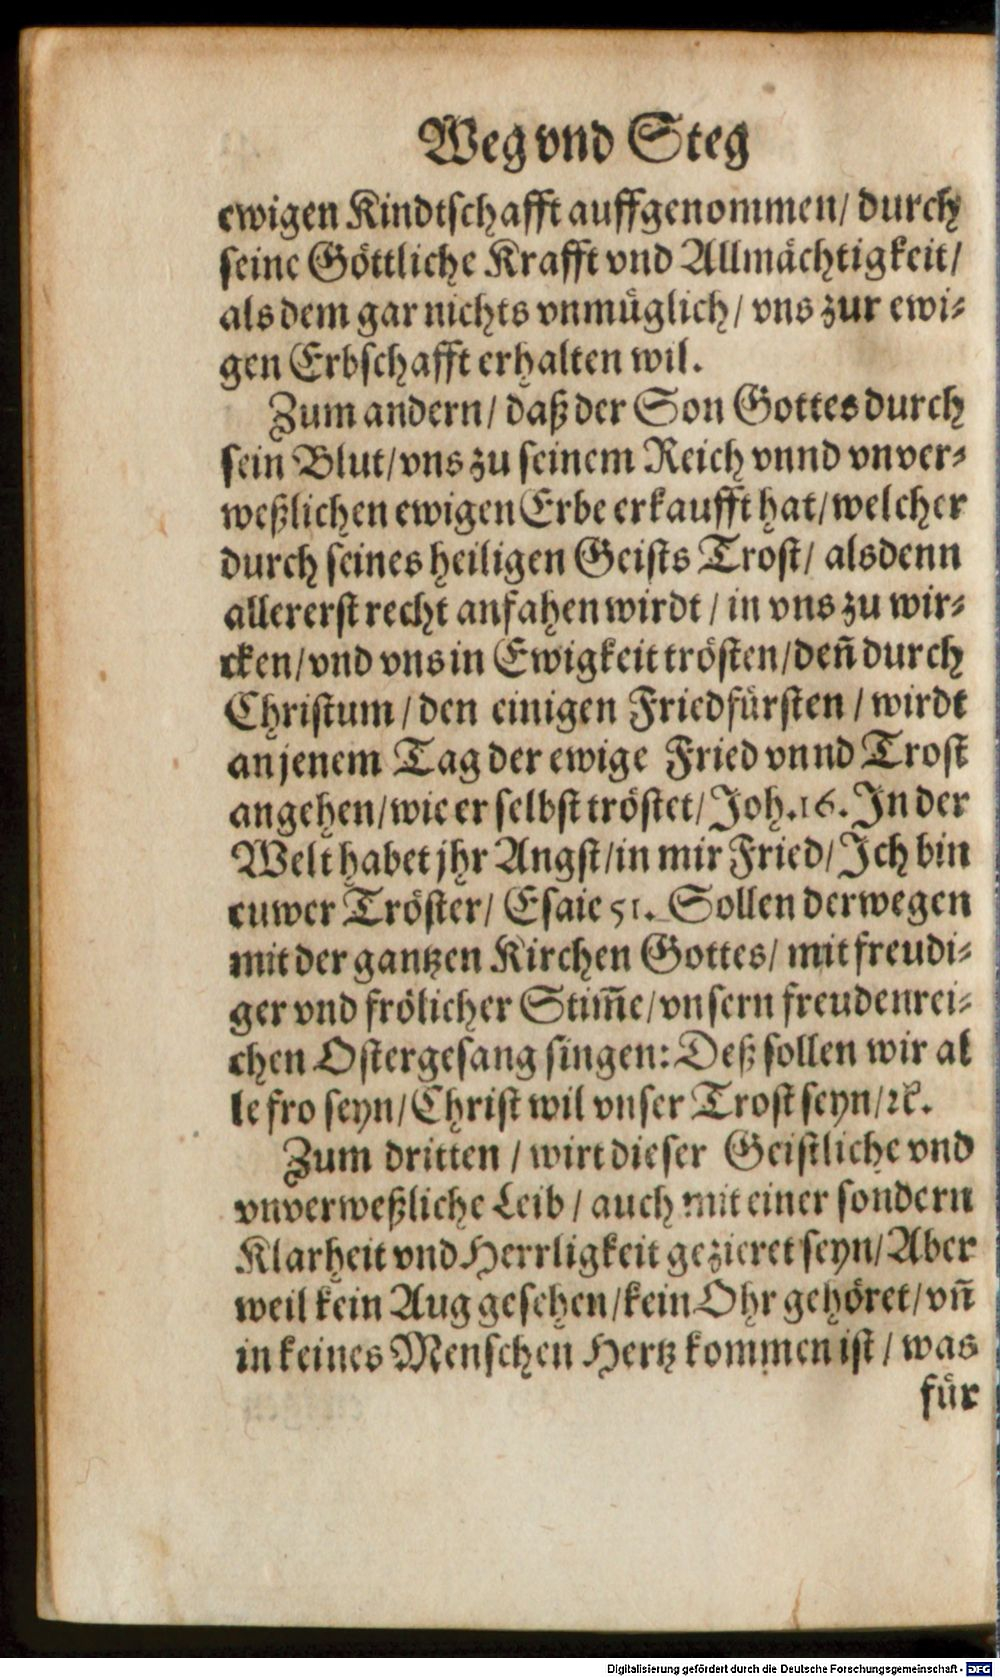 Weg vnd Steg
ewigen Kindtschafft auffgenommen/ durch
seine Göttliche Krafft vnd Allmächtigkeit/
als dem gar nichts vnmüglich/ vns zur ewi-
gen Erbschafft erhalten wil.
Zum andern/ daß der Son Gottes durch
sein Blut/ vns zu seinem Reich vnnd vnver-
weßlichen ewigen Erbe erkaufft hat/ welcher
durch seines heiligen Geists Trost/ alsdenn
allererst recht anfahen wirdt/ in vns zu wir-
cken/ vnd vns in Ewigkeit trösten/ deñ durch
Christum/ den einigen Friedfürsten/ wirdt
an jenem Tag der ewige Fried vnnd Trost
angehen/ wie er selbst tröstet/ Joh. 16. In der
Welt habet jhr Angst/ in mir Fried/ Ich bin
euwer Tröster/ Esaie 51. Sollen derwegen
mit der gantzen Kirchen Gottes/ mit freudi-
ger vnd frölicher Stim̃e/ vnsern freudenrei-
chen Ostergesang singen: Deß sollen wir al
le fro seyn/ Christ wil vnser Trost seyn/ ꝛc.
Zum dritten/ wirt dieser Geistliche vnd
vnverweßliche Leib/ auch mit einer sondern
Klarheit vnd Herrligkeit gezieret seyn/ Aber
weil kein Aug gesehen/ kein Ohr gehöret/ vñ
in keines Menschen Hertz kommen ist/ was
für
Digitalisierung gefördert durch die Deutsche Forschungsgemeinschaft - DFG